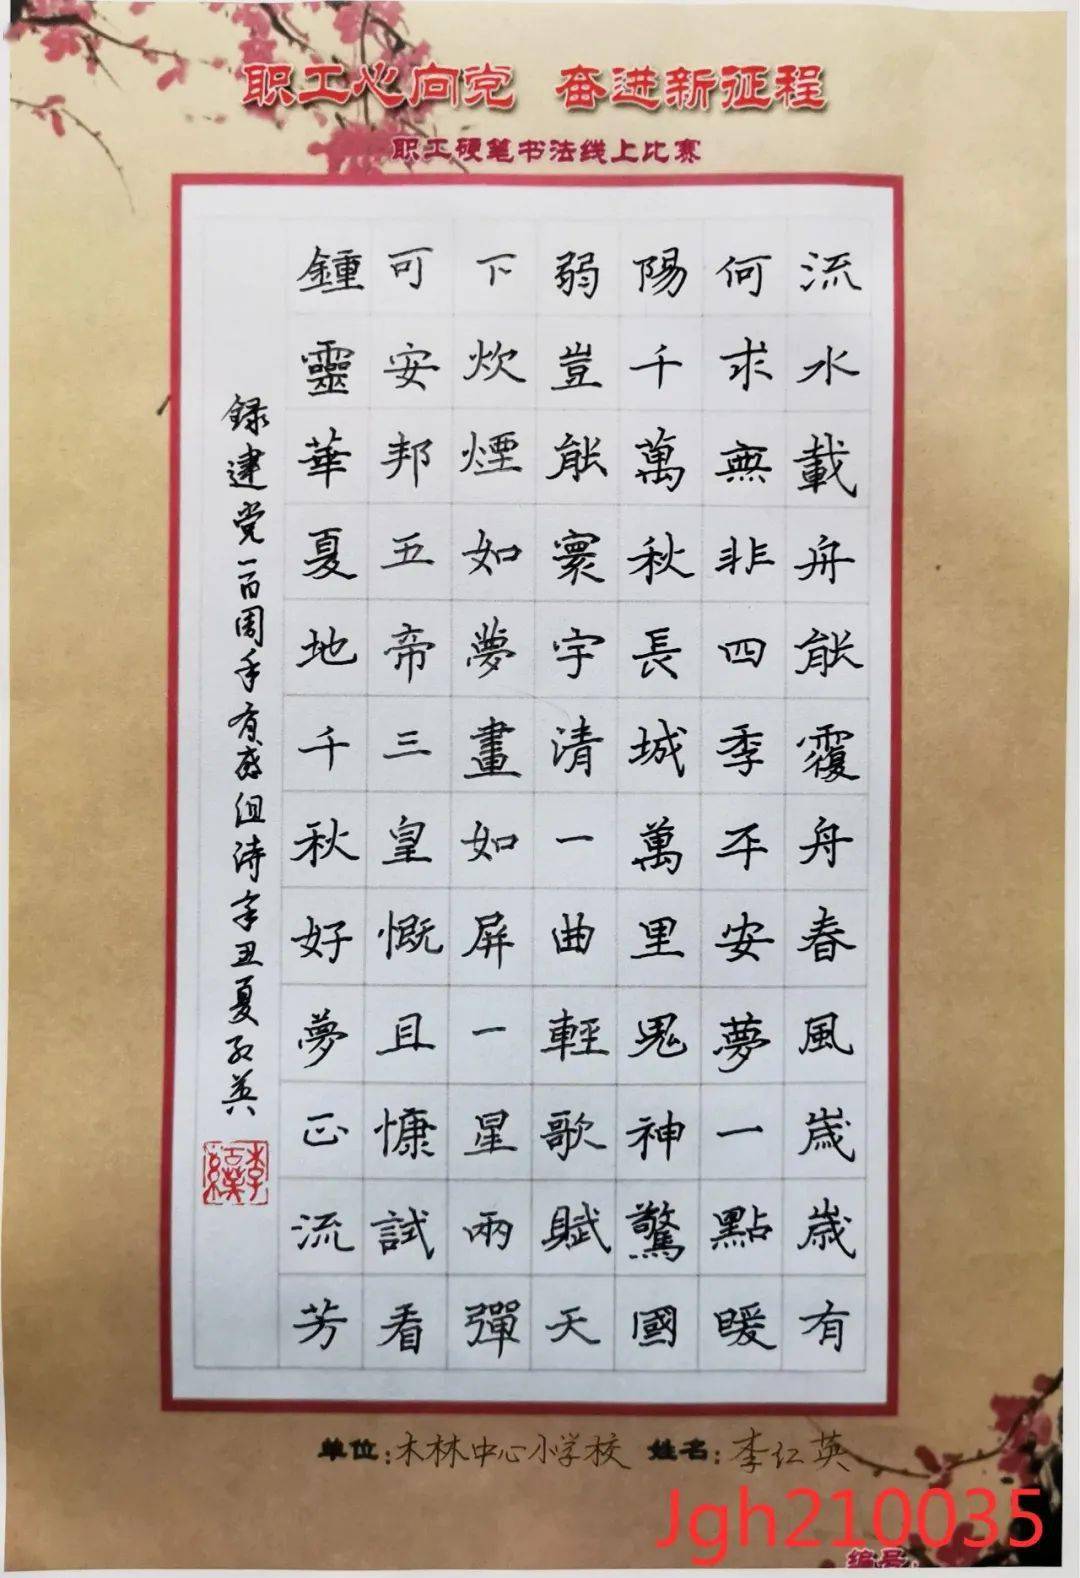 职工心向党 奋进新征程
职工硬笔书法线上比赛
流水載舟能覆舟春風歲歲有
何求無非四季平安夢一點暖
陽千萬秋長城萬里鬼神驚國
弱豈能寰宇清一曲輕歌賦天
下炊煙如夢畫如屏一星兩彈
可安邦五帝三皇慨且慷試看
鍾靈華夏地千秋好夢正流芳
録建党一百周年有感组诗辛丑夏红英
单位:木林中心小学校 姓名:李红英
Jgh210035
编号: